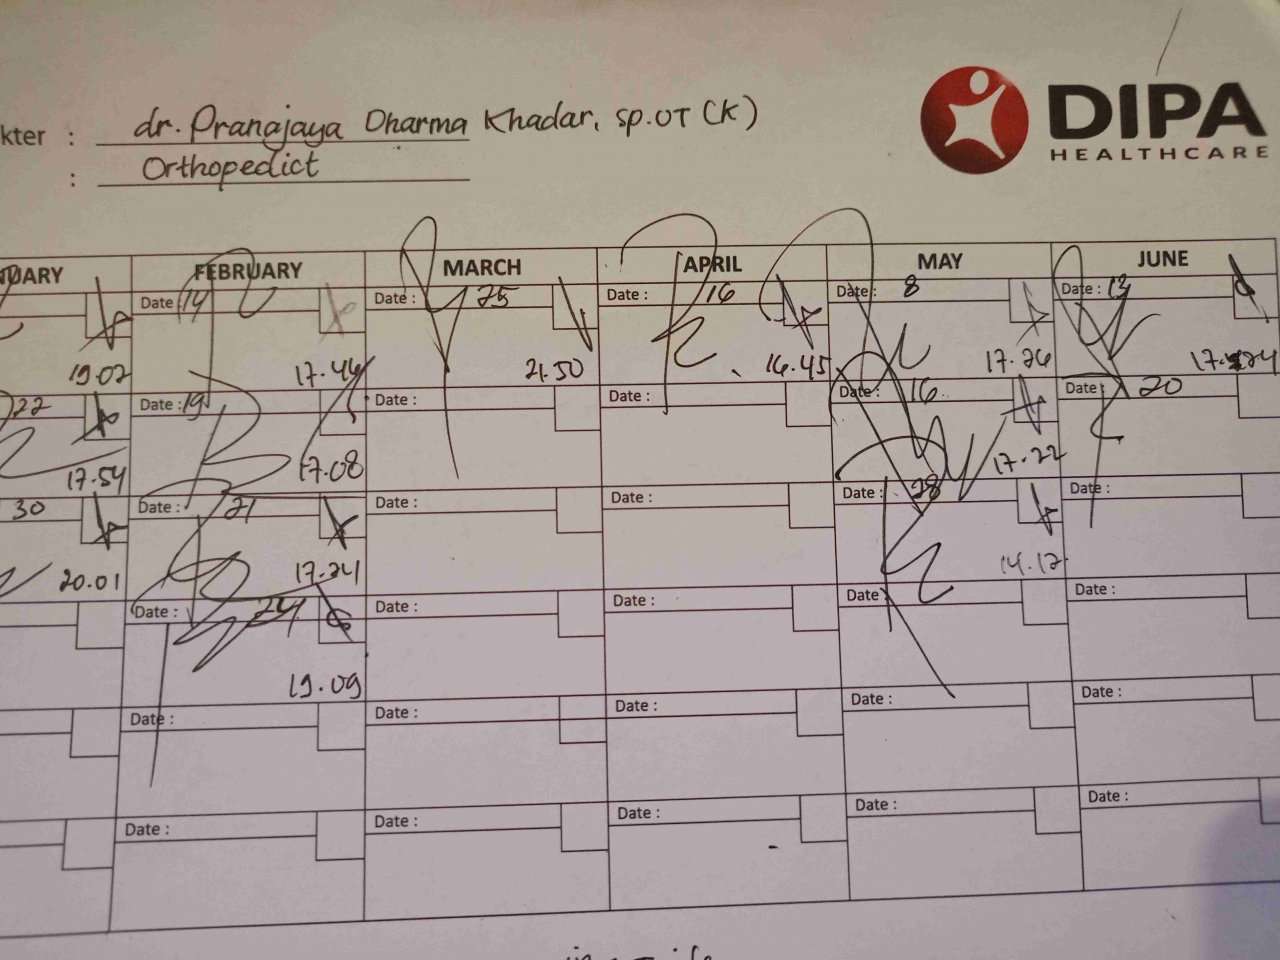 kter : dr. Pranajaya Dharma Khadar, sp.OT (K)
: Orthopedict
DIPA
HEALTHCARE
UARY FEBRUARY MARCH APRIL MAY JUNE
Date : 14 Date : 25 Date : 16 Date : 8 Date : 13
19.02 17.44 21.50 16.45 17.26
22 Date : 19 Date : Date : Date : 16 Date : 20
17.54 17.08 17.22
30 Date : 21 Date : Date : Date : 28 Date :
20.01 17.24 14.12
Date : 24 Date : Date : Date Date :
19.09
Date : Date : Date : Date : Date :
Date : Date : Date : Date : Date :